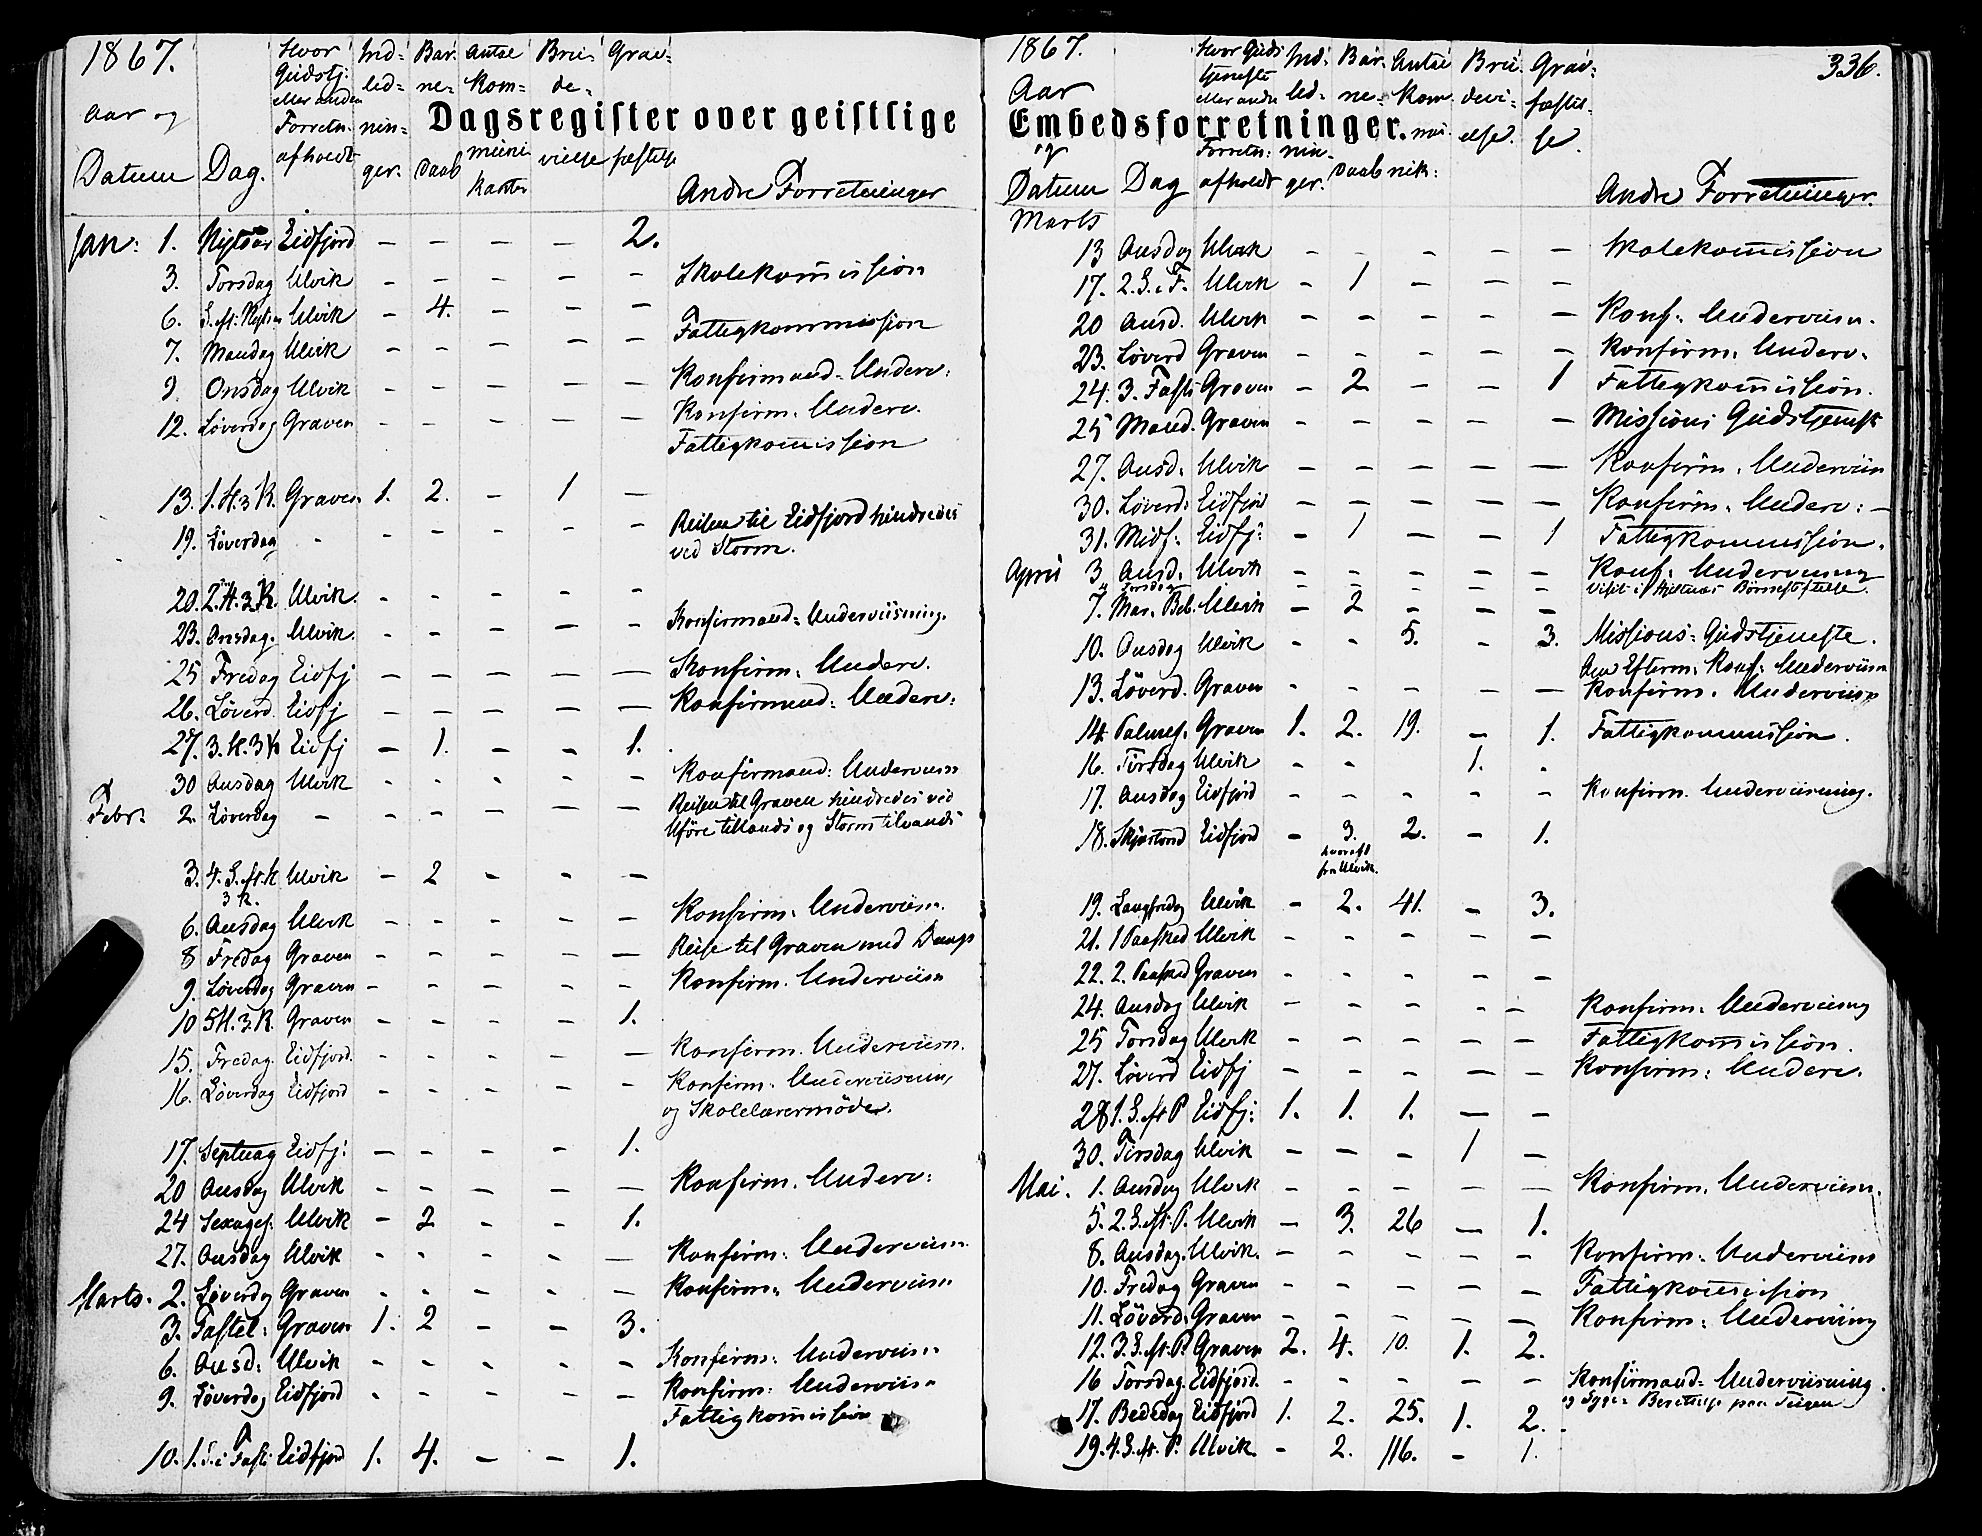 1867.
Aar og
Datum Dag. Hvor Gudstj: eller anden Forretn. afholdt Ind-led-nin-ger. Bar-ne-Daab Antal Kom-muni-kanter Bru-de-vielse Grav-fæstelse Andre Forretninger
Dagsregister over geistlige
Jan: 1. Nytaar Eidfjord - - - - 2.
3. Torsdag Ulvik - - - - - Skolekommission
6. S. eft. Nytaar Ulvik - 4. - - -
7. Mandag Ulvik - - - - - Fattigkommission
9. Onsdag Ulvik - - - - - Konfirmand-Underv:
12. Løverdag Graven - - - - - Konfirm. Underv.
Fattigkommission
13. 1. S. e. H. 3 K. Graven 1. 2. - 1 -
19. Løverdag - - - - - - Reisen til Eidfjord hindredes
ved Storm.
20. 2. H. 3 K. Ulvik - - - - -
23. Onsdag. Ulvik. - - - - - Konfirmand-Underviisning.
25 Fredag Eidfj - - - - - Konfirm. Underv.
26. Løverd. Eidfj - - - - - Konfirmand: Underv:
27. 3. H. 3 K Eidfj - 1. - - 1.
30 Onsdag Ulvik - - - - - Konfirmand: Underviisn
Febr. 2. Løverdag - - - - - - Reisen til Graven hindredes ved
Uføre tillands og Storm tilvands
3. 4. S. eft. H Ulvik - 2 - - -
3 K.
6. Onsdag Ulvik - - - - - Konfirm: Underviisn.
8 Fredag Graven - - - - - Reise til Graven med Damps
9. Løverdag Graven - - - - - Konfirm. Underviisn
10 5 H. 3. K. Graven - - - - 1.
15. Fredag. Eidfjord. - - - - - Konfirm. Underviisn.
16. Løverdag Eidfjord - - - - - Konfirm: Underviisning
og Skolelærermøde.
17. Septuag Eidfj: - - - - 1.
20 Onsdag Ulvik - - - - - Konfirm. Underv:
24 Sexages. Ulvik - 2 - - 1.
27. Onsdag Ulvik - - - - - Konfirm: Underviisn.
Marts. 2. Løverdag Graven - - - - - Konfirm: Underviisn
3. Fastel: Graven 1. 2 - - 3.
6. Onsd: Ulvik - - - - - Konfirm: Underviisn
9. Løverdag Eidfjord - - - - - Konfirm: Underviisn
Fattigkommission
10. 1. S. i Fast: Eidfjord 1. 4. - - 1.
1867.
336.
Aar
og
Datum Dag Hvor Guds tjeneste eller anden Forretn: afholdt Ind-led-nin-ger. Bar-ne-Daab Antal Kom-mu-nik: Bru-devi-else. Grav-fæstel-se. Andre Forretninger.
Embedsforretninger.
Marts
13 Onsdag Ulvik - - - - - Skolekommission
17. 2. S. i F. Ulvik - 1 - - -
20 Onsd. Ulvik - - - - - Konf: Underviisn.
23. Løverd Graven - - - - - Konfirm: Underv.
24. 3. Faste Graven - 2 - - 1 Fattigkommission.
25 Mand. Graven - - - - - Missions Gudstjeneste
27. Onsd. Ulvik - - - - - Konfirm. Underviisn
30. Løverd: Eidfjord - - - - - Konfirm. Underv: -
31. Midf: Eidfj: - 1 - - 1 Fattigkommission.
April 3 Onsd. Ulvik - - - - - Konf: Underviisning
4 Torsdag - - - - -
7. Mar. Beb. Ulvik - 2 - - -
10. Onsdag Ulvik - - 5. - 3. Missions-Gudstjeneste.
Om Efterm: Konf: Underviisn
13. Løverd. Graven - - - - - Konfirm. Underviisn
14. Palmes. Graven 1. 2. 19. - 1. Fattigkommission.
16. Tirsdag Ulvik - - 1. -
17. Onsdag Eidfjord - - - - - Konfirm. Underviisning.
18. Skjærtorsd Eidfjord - 3. 2. - 1.
hvoraf 1
fra Ulvik.
19. Langfredag Ulvik - 2. 41. - 3.
21. 1 Paasked Ulvik - - - - -
22. 2. Paasked Graven - - - - -
24. Onsdag Ulvik - - - - - Konfirm: Underviisning
25 Torsdag Ulvik - - - - - Fattigkommission.
27. Løverd Eidfj - - - - - Konfirm: Underv.
28 1. S. eft P Eidfj: 1. 1. 1. - -
30. Tirsdag Ulvik - - - 1 -
Mai. 1. Onsdag Ulvik - - - - - Konfirm. Underviisn.
5. 2. S. eft. P. Ulvik - 3. 26 - 1.
8. Onsdag. Ulvik. - - - - - Konfirm: Underviisn
10. Fredag Graven - - - - - Fattigkommission
11. Løverd. Graven - - - - - Konfirm: Underviisning
12. 3. S. eft. P. Graven 2. 4. 10. 1. 2.
16 Torsdag. Eidfjord. - - - - - Konfirmand-Underviisning.
17. Bededag Eidfjord 1. 2. 25. 1. 2.
19. 4. S. eft. P. Ulvik. - 2. 116. - 1.